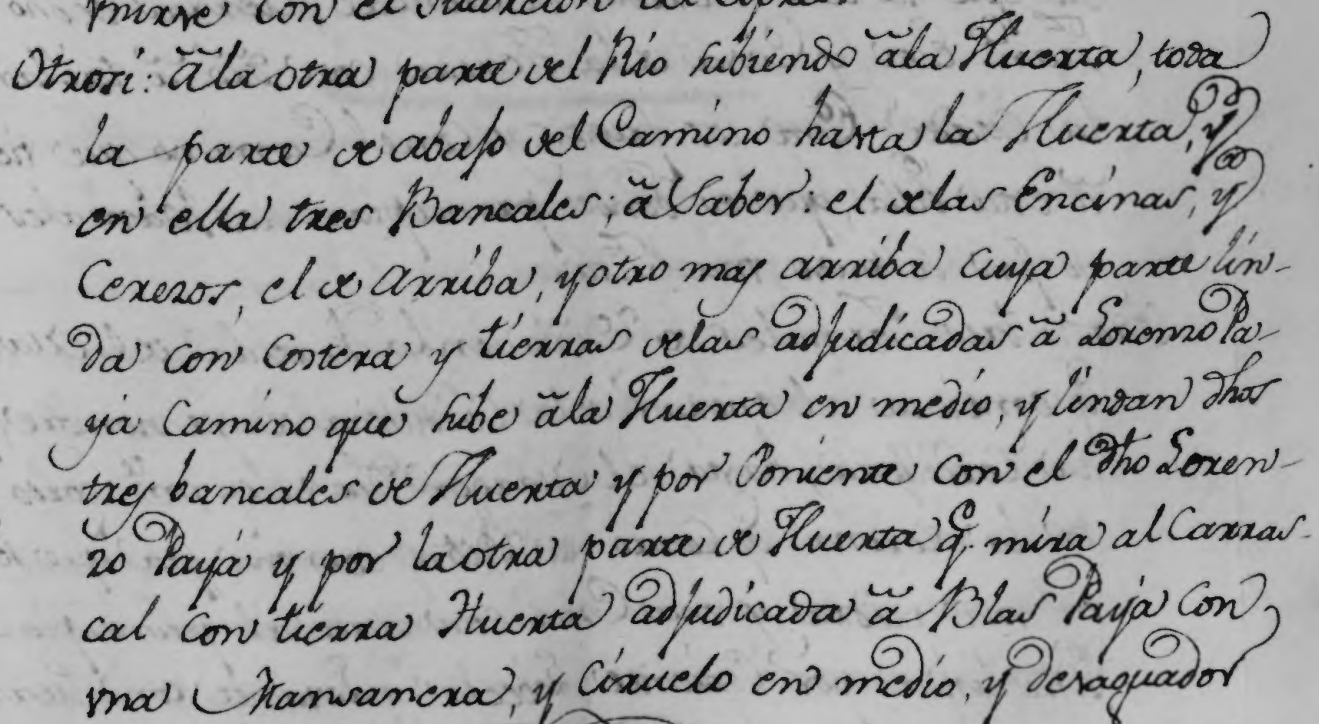 con el
Otrosi: â la otra parte del Rio subiendo â la Huerta, toda
la parte de abaso del Camino hasta la Huerta, y
en ella tres Bancales; â Saber: el de las Encinas, y
Cerezos, el de Arriba, y otro mas arriba cuya parte lin-
da con Costera y tierras de las adjudicadas â Lorenzo Pa-
yá Camino que sube â la Huerta en medio, y lindan dhos
tres bancales de Huerta y por Poniente con el dho Loren-
zo Payá y por la otra parte de Huerta q. mira al Carras-
cal con tierra Huerta adjudicada â Blas Payá con
vna Mansanera, y Ciruelo en medio, y desaguador